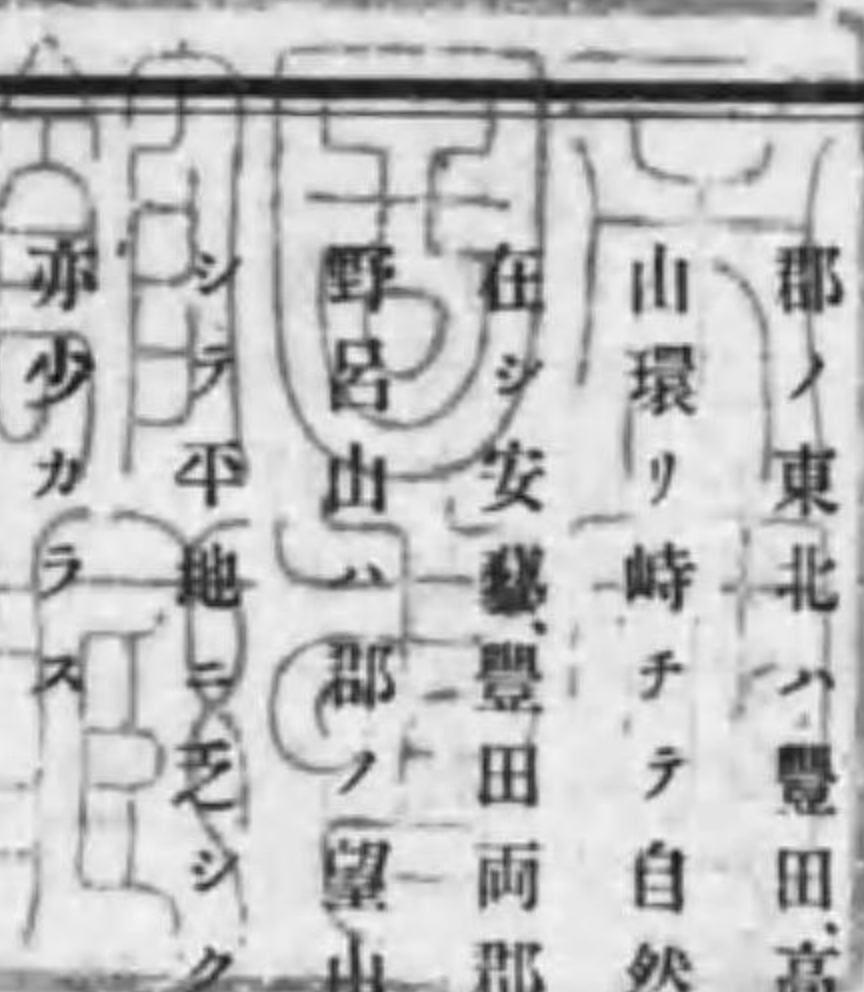 郡ノ東北ハ豐田、高
山環リ峙チテ自然
在シ安藝、豐田両郡
野呂山ハ郡ノ望山
シテ平地ニ乏シク
亦少カラス